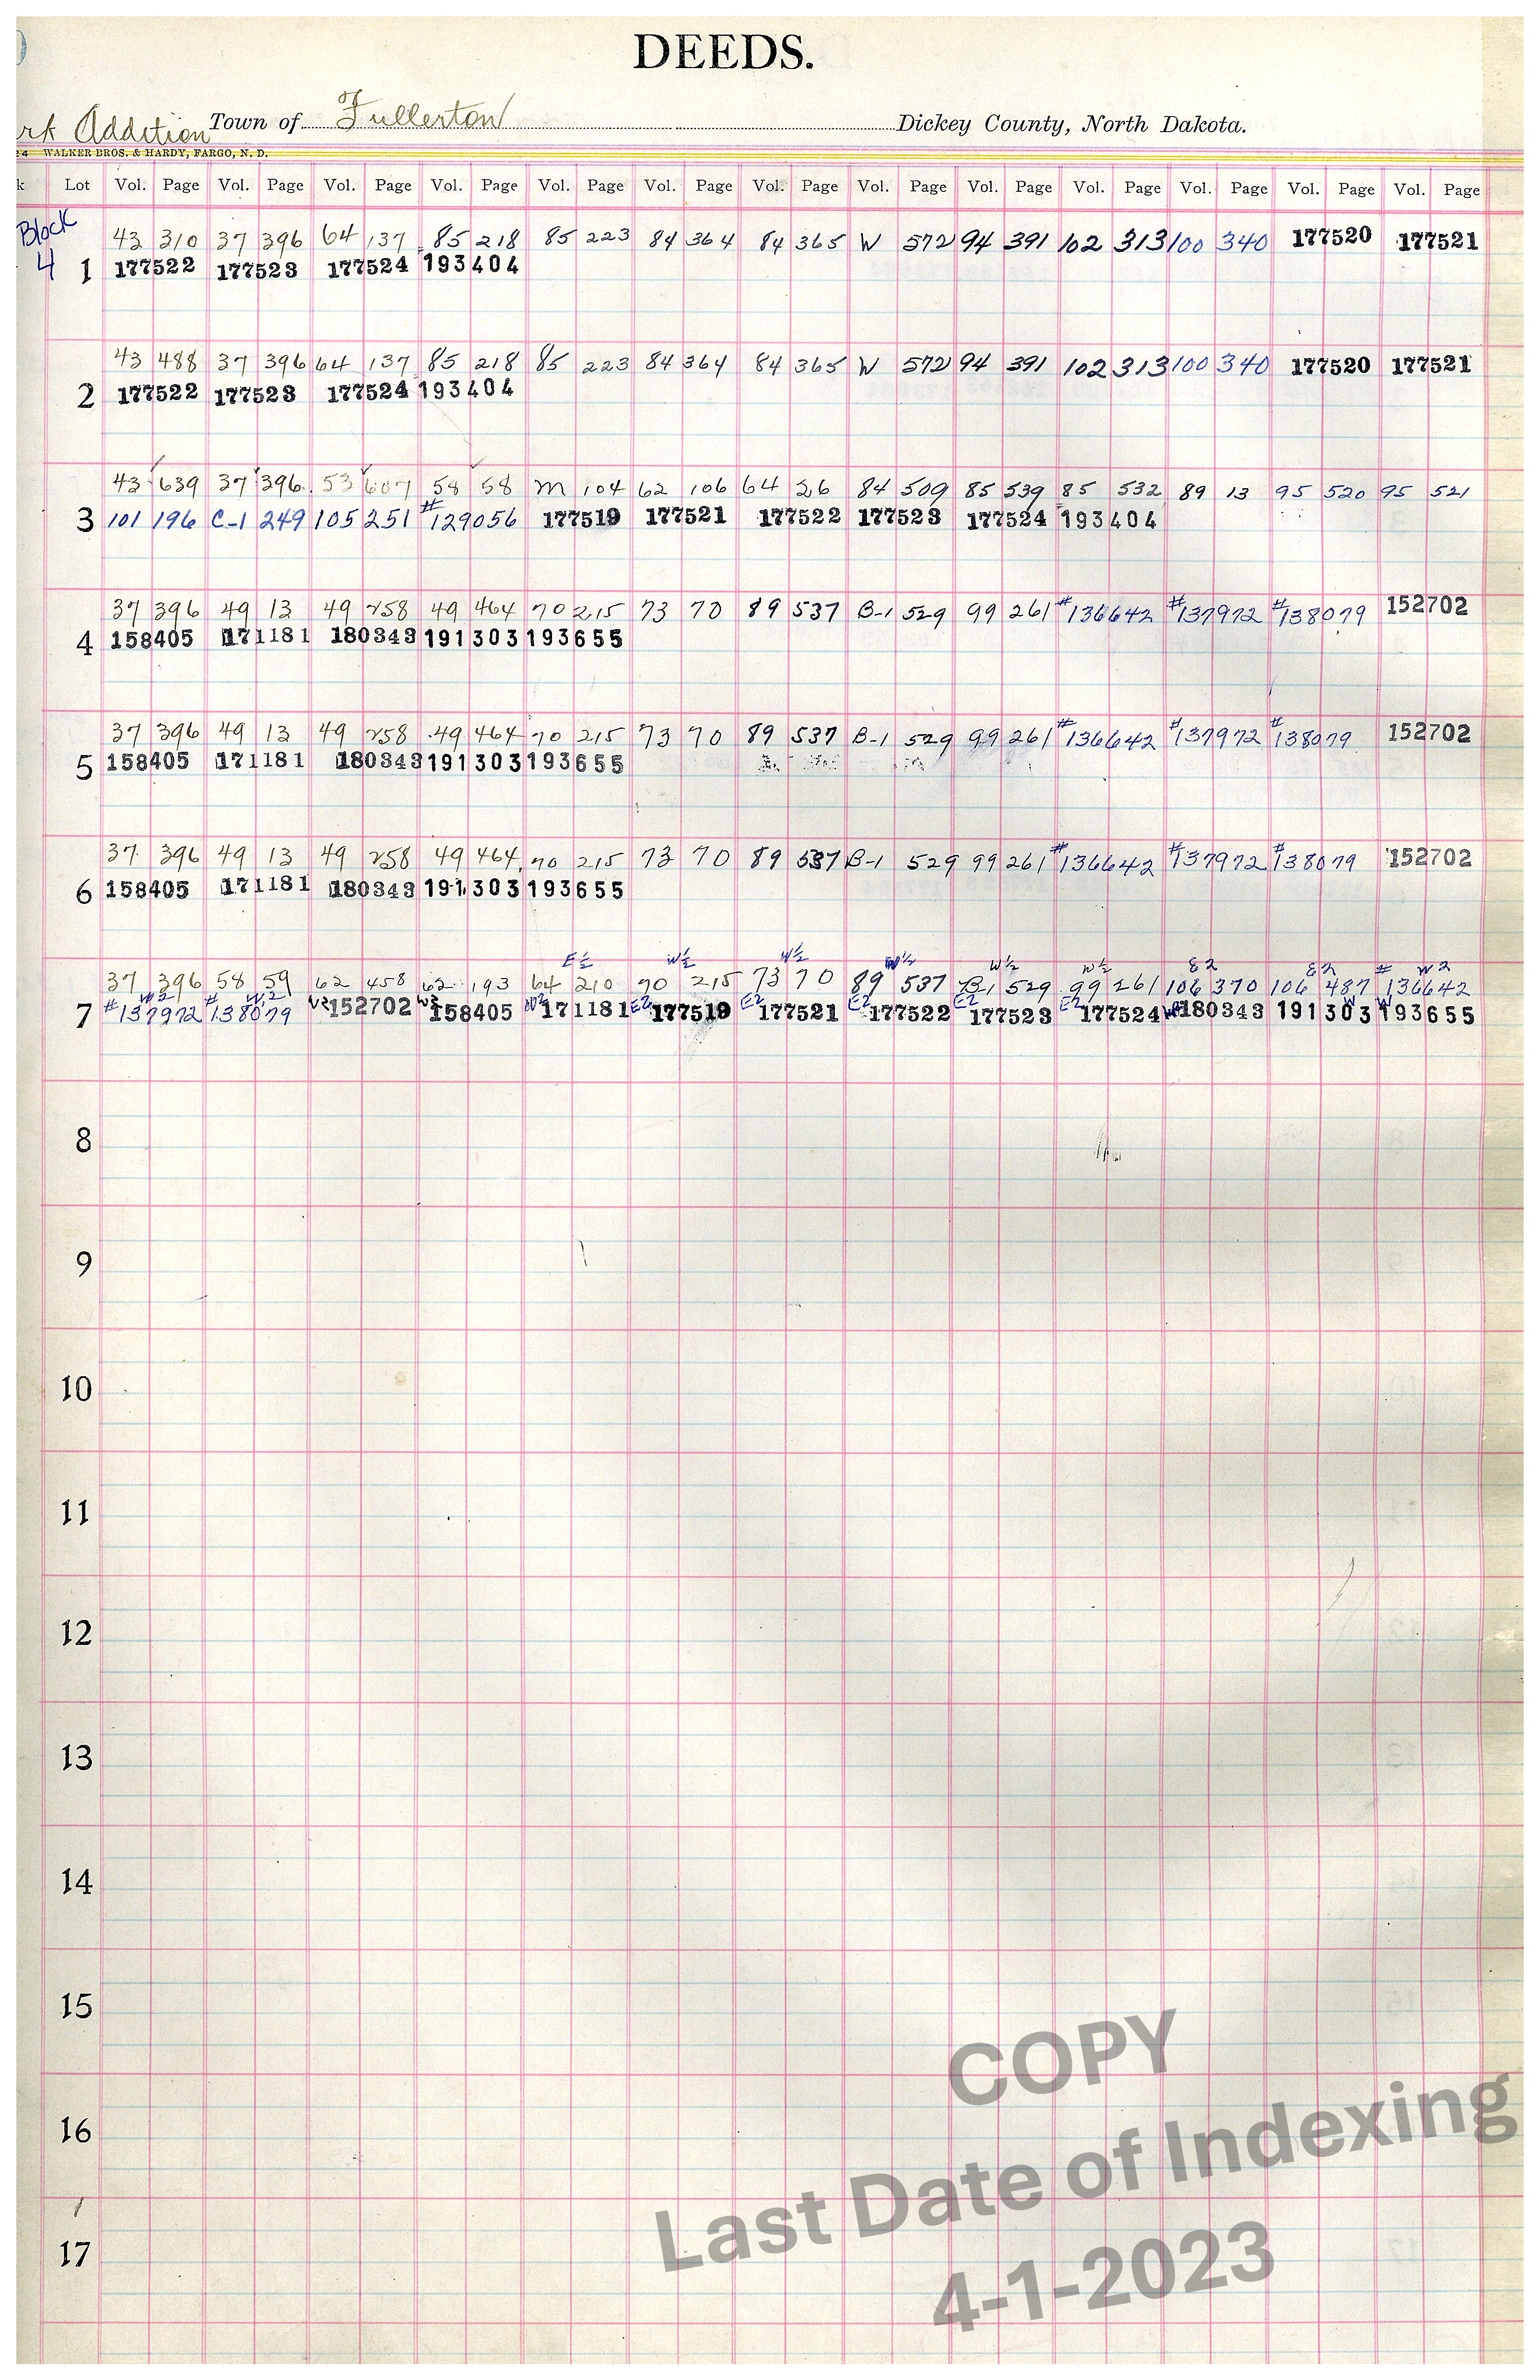 DEEDS.
Addition Town of Fullerton Dickey County, North Dakota.
WALKER BROS. & HARDY, FARGO, N. D.
Lot Vol. Page Vol. Page Vol. Page Vol. Page Vol. Page Vol. Page Vol. Page Vol. Page Vol. Page Vol. Page Vol. Page Vol. Page Vol. Page
Block
4
43 310 37 396 64 137 85 218 85 223 84 364 84 365 W 572 94 391 102 313 100 340 177520 177521
1 177522 177523 177524 193404
43 488 37 396 64 137 85 218 85 223 84 364 84 365 W 572 94 391 102 313 100 340 177520 177521
2 177522 177523 177524 193404
43 639 37 396 53 607 58 58 M 104 62 106 64 26 84 509 85 539 85 532 89 13 95 520 95 521
3 101 196 C-1 249 105 251 #129056 177519 177521 177522 177523 177524 193404
37 396 49 13 49 258 49 464 70 215 73 70 89 537 B-1 529 99 261 #136642 #137972 #138079 152702
4 158405 171181 180343 191303 193655
37 396 49 13 49 258 49 464 70 215 73 70 89 537 B-1 529 99 261 #136642 #137972 #138079 152702
5 158405 171181 180343 191303 193655
37 396 49 13 49 258 49 464 70 215 73 70 89 537 B-1 529 99 261 #136642 #137972 #138079 152702
6 158405 171181 180343 191303 193655
E½ W½ W½ W½ W½ W½ E2 E2 # W2
37 396 58 59 62 458 62 193 64 210 70 215 73 70 89 537 B-1 529 99 261 106 370 106 487 136642
# W2 # W2 W2 W2 W2 E2 E2 E2 E2 E2 W2 W W
7 137972 138079 152702 158405 171181 177519 177521 177522 177523 177524 180343 191303 193655
8
9
10
11
12
13
14
15
16
17
COPY
Last Date of Indexing
4-1-2023